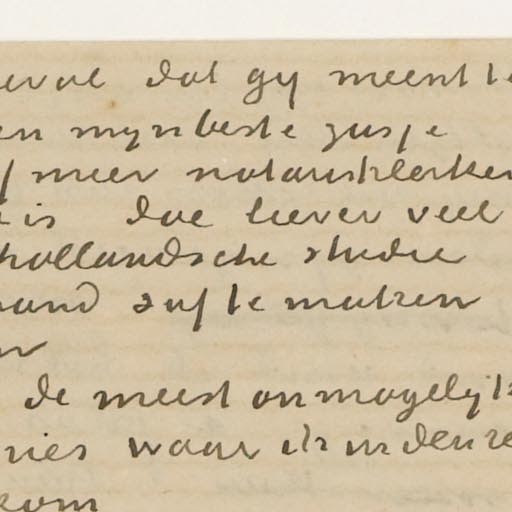 geval dat gij meent te
en mijn beste zusje
of meer notarisklerken
is doe liever veel
hollandsche studie
hand suf te maken
de meest onmogelijk
waar ik indenze
kom